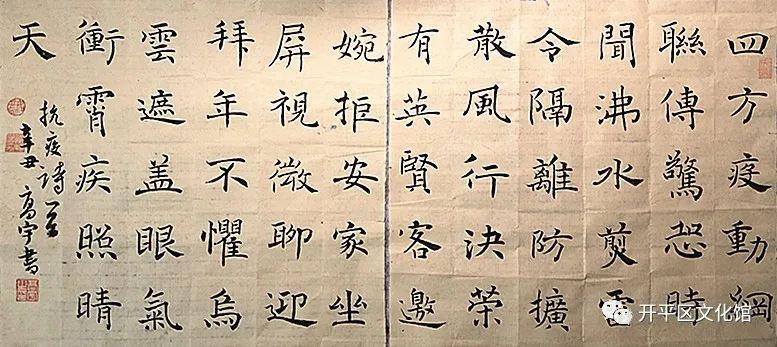 四方疫動網
聯傳驚恐時
聞沸水煎雷
令隔離防擴
散風行決榮
有英賢客邀
婉拒安家坐
屏視微聊迎
拜年不懼烏
雲遮盖眼氣
衝霄疾照晴
天
抗疫詩一首
辛丑高宇書
开平区文化馆